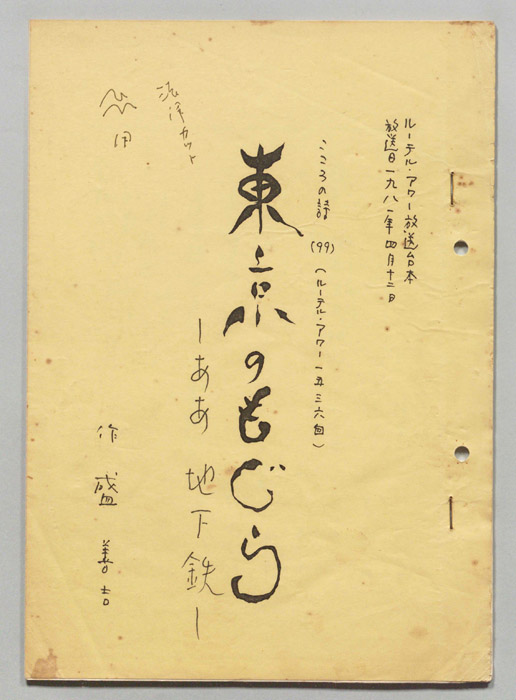 ルーテル・アワー放送台本
放送日一九八一年四月十二日
こころの詩 (99) (ルーテル・アワー一五三六回)
東京のもぐら
ーああ 地下鉄ー
作 盛 善吉
カット